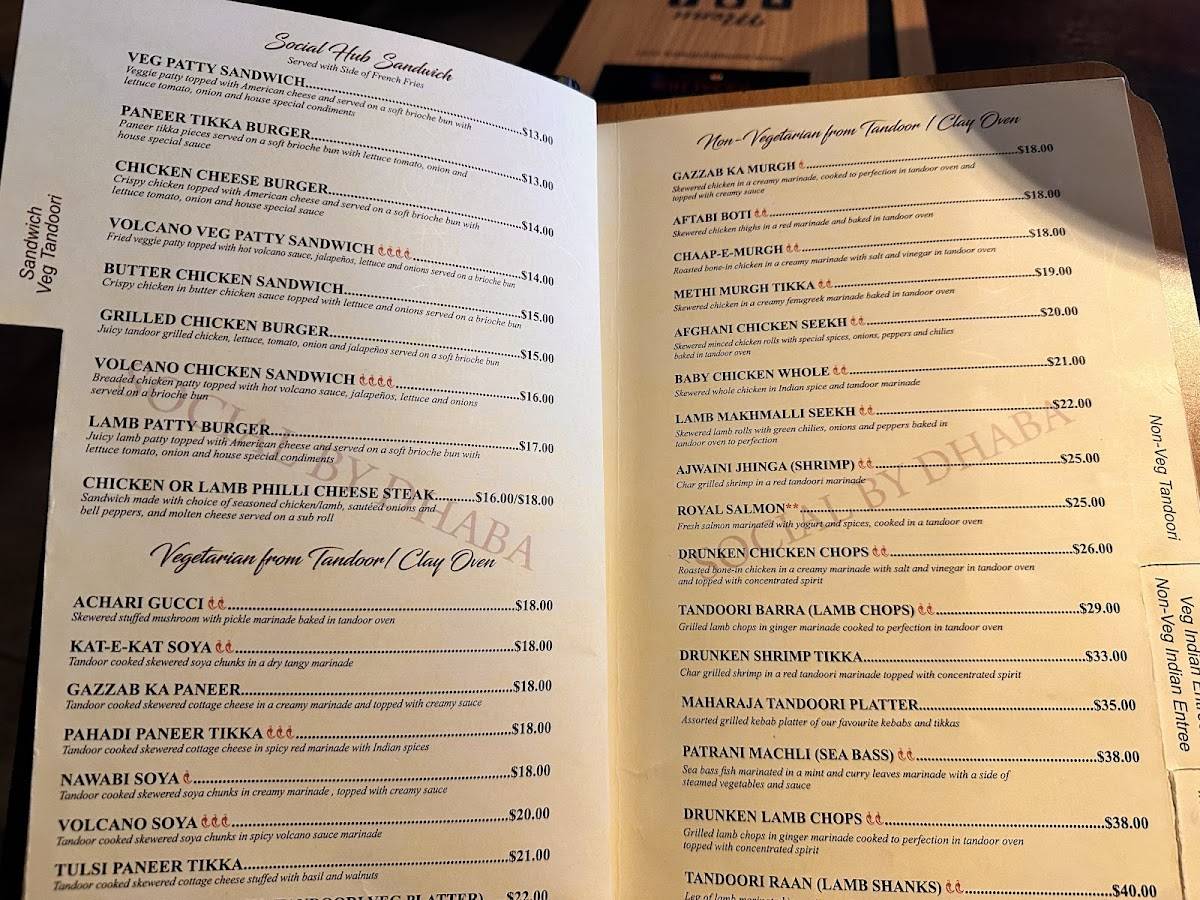 Menu
Sandwich
Veg Tandoori
Social Hub Sandwich
Served with Side of French Fries
VEG PATTY SANDWICH...$13.00
Veggie patty topped with American cheese and served on a soft brioche bun with
lettuce tomato, onion and house special condiments
PANEER TIKKA BURGER...$13.00
Paneer tikka pieces served on a soft brioche bun with lettuce tomato, onion and
house special sauce
CHICKEN CHEESE BURGER...$14.00
Crispy chicken topped with American cheese and served on a soft brioche bun with
lettuce tomato, onion and house special sauce
VOLCANO VEG PATTY SANDWICH...$14.00
Fried veggie patty topped with hot volcano sauce, jalapeños, lettuce and onions served on a brioche bun
BUTTER CHICKEN SANDWICH...$15.00
Crispy chicken in butter chicken sauce topped with lettuce and onions served on a brioche bun
GRILLED CHICKEN BURGER...$15.00
Juicy tandoor grilled chicken, lettuce, tomato, onion and jalapeños served on a soft brioche bun
VOLCANO CHICKEN SANDWICH...$16.00
Breaded chicken patty topped with hot volcano sauce, jalapeños, lettuce and onions
served on a brioche bun
LAMB PATTY BURGER...$17.00
Juicy lamb patty topped with American cheese and served on a soft brioche bun with
lettuce tomato, onion and house special condiments
CHICKEN OR LAMB PHILLI CHEESE STEAK...$16.00/$18.00
Sandwich made with choice of seasoned chicken/lamb, sautéed onions and
bell peppers, and molten cheese served on a sub roll
SOCIAL BY DHABA
Vegetarian from Tandoor/ Clay Oven
ACHARI GUCCI...$18.00
Skewered stuffed mushroom with pickle marinade baked in tandoor oven
KAT-E-KAT SOYA...$18.00
Tandoor cooked skewered soya chunks in a dry tangy marinade
GAZZAB KA PANEER...$18.00
Tandoor cooked skewered cottage cheese in a creamy marinade and topped with creamy sauce
PAHADI PANEER TIKKA...$18.00
Tandoor cooked skewered cottage cheese in spicy red marinade with Indian spices
NAWABI SOYA...$18.00
Tandoor cooked skewered soya chunks in creamy marinade , topped with creamy sauce
VOLCANO SOYA...$20.00
Tandoor cooked skewered soya chunks in spicy volcano sauce marinade
TULSI PANEER TIKKA...$21.00
Tandoor cooked skewered cottage cheese stuffed with basil and walnuts
VEG PLATTER)...$22.00
Non-Vegetarian from Tandoor / Clay Oven
GAZZAB KA MURGH...$18.00
Skewered chicken in a creamy marinade, cooked to perfection in tandoor oven and
topped with creamy sauce
AFTABI BOTI...$18.00
Skewered chicken thighs in a red marinade and baked in tandoor oven
CHAAP-E-MURGH...$18.00
Roasted bone-in chicken in a creamy marinade with salt and vinegar in tandoor oven
METHI MURGH TIKKA...$19.00
Skewered chicken in a creamy fenugreek marinade baked in tandoor oven
AFGHANI CHICKEN SEEKH...$20.00
Skewered minced chicken rolls with special spices, onions, peppers and chilies
baked in tandoor oven
BABY CHICKEN WHOLE...$21.00
Skewered whole chicken in Indian spice and tandoor marinade
LAMB MAKHMALLI SEEKH...$22.00
Skewered lamb rolls with green chilies, onions and peppers baked in
tandoor oven to perfection
AJWAINI JHINGA (SHRIMP)...$25.00
Char grilled shrimp in a red tandoori marinade
ROYAL SALMON**...$25.00
Fresh salmon marinated with yogurt and spices, cooked in a tandoor oven
DRUNKEN CHICKEN CHOPS...$26.00
Roasted bone-in chicken in a creamy marinade with salt and vinegar in tandoor oven
and topped with concentrated spirit
TANDOORI BARRA (LAMB CHOPS)...$29.00
Grilled lamb chops in ginger marinade cooked to perfection in tandoor oven
DRUNKEN SHRIMP TIKKA...$33.00
Char grilled shrimp in a red tandoori marinade topped with concentrated spirit
MAHARAJA TANDOORI PLATTER...$35.00
Assorted grilled kebab platter of our favourite kebabs and tikkas
PATRANI MACHLI (SEA BASS)...$38.00
Sea bass fish marinated in a mint and curry leaves marinade with a side of
steamed vegetables and sauce
DRUNKEN LAMB CHOPS...$38.00
Grilled lamb chops in ginger marinade cooked to perfection in tandoor oven
topped with concentrated spirit
TANDOORI RAAN (LAMB SHANKS)...$40.00
Leg of lamb
SOCIAL BY DHABA
Non-Veg Tandoori
Veg Indian
Non-Veg Indian Entree